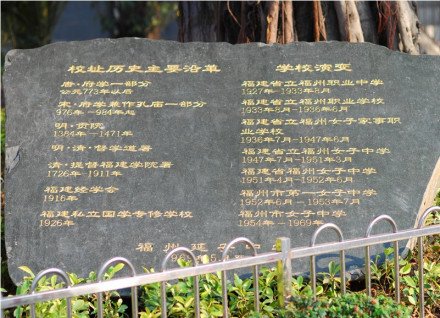 校址历史主要沿革
唐·府学一部分
公元773年以后
宋·府学兼作孔庙一部分
976年-984年起
明·贡院
1384年-1471年
明·清·督学道署
清·提督福建学院署
1726年-1911年
福建经学会
1916年
福建私立国学专修学校
1926年
学校演变
福建省立福州职业中学
1927年-1933年8月
福建省立福州职业学校
1933年8月-1936年7月
福建省立福州女子家事职
业学校
1936年7月-1947年6月
福建省立福州女子中学
1947年7月-1951年3月
福建省福州女子中学
1951年4月-1952年6月
福州市第一女子中学
1952年6月-1953年7月
福州市女子中学
1954年-1969年
福州延